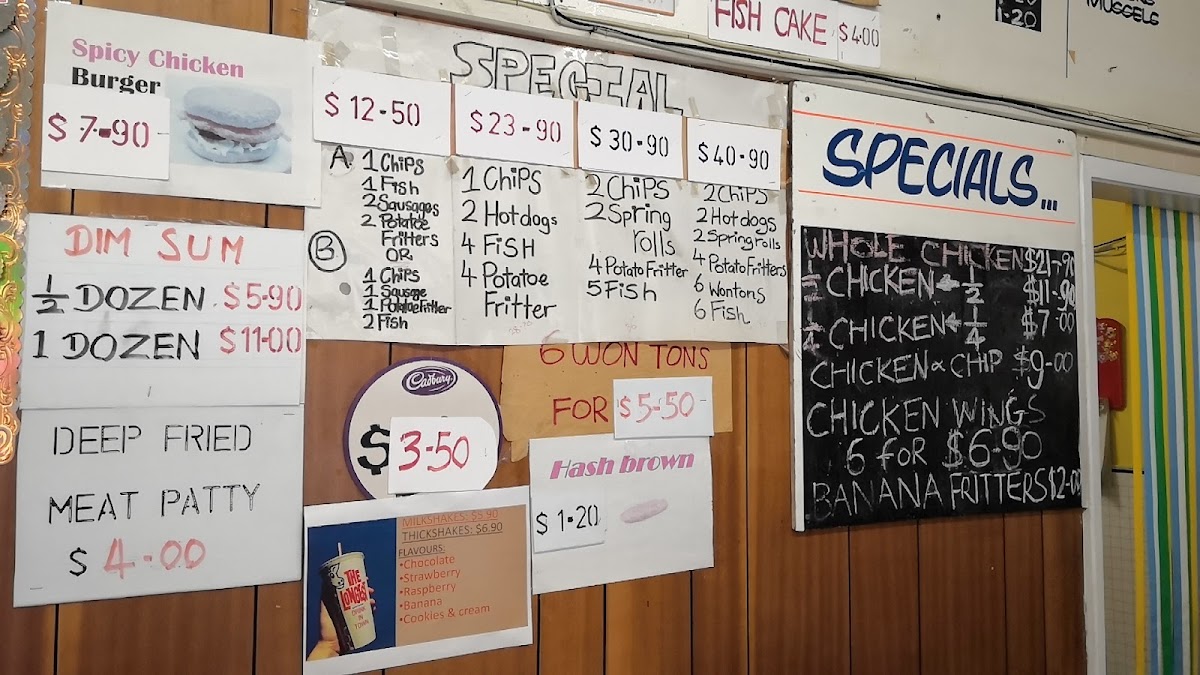 FISH CAKE $4.00
1.20
MUSSELS
Spicy Chicken
Burger
$7-90
SPECIAL
$12-50
A. 1 Chips
1 Fish
2 Sausages
2 Potatoe
Fritters
OR
B. 1 Chips
1 Sausage
1 Potatoe Fritter
2 Fish
$23-90
1 Chips
2 Hotdogs
4 FiSH
4 Potatoe
Fritter
$30-90
2 Chips
2 Spring
rolls
4 Potato Fritter
5 Fish
$40-90
2 Chips
2 Hotdogs
2 Spring rolls
4 Potato Fritters
6 Wontons
6 Fish
SPECIALS...
WHOLE CHICKEN $21-90
1/2 CHICKEN + 1/2 $11-90
1/4 CHICKEN + 1/4 $7-00
CHICKEN & CHIP $9-00
CHICKEN WINGS
6 FOR $6-90
BANANA FRITTERS $2-00
DIM SUM
1/2 DOZEN $5-90
1 DOZEN $11-00
DEEP FRIED
MEAT PATTY
$4-00
Cadbury
$3-50
6 WON TONS
FOR $5-50
Hash brown
$1-20
MILKSHAKES: $5.90
THICKSHAKES: $6.90
FLAVOURS:
•Chocolate
•Strawberry
•Raspberry
•Banana
•Cookies & cream
THE
LONGEST
DRINK
IN
TOWN